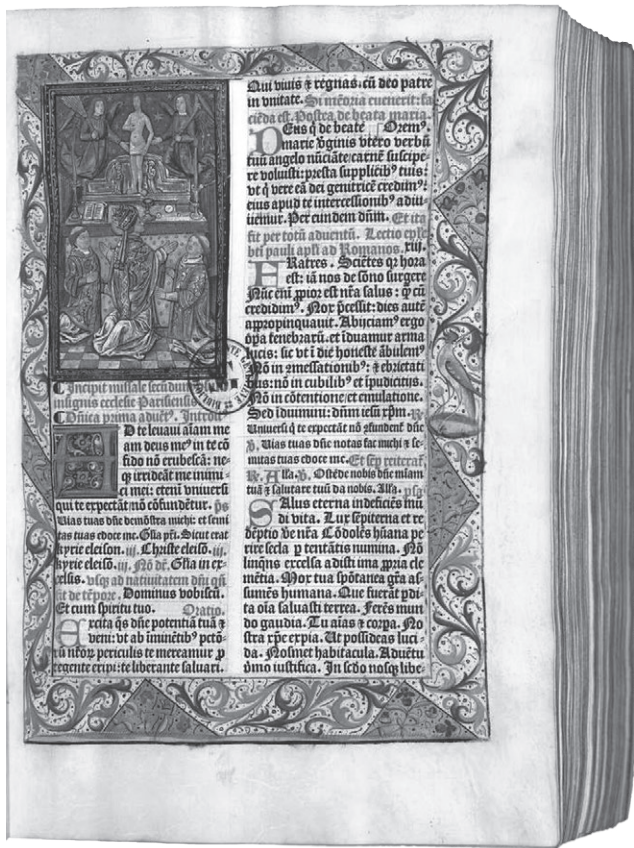 ¶ Incipit missale secundum
insignis ecclesie Parisiensis
¶ Dñica prima aduēt⁹. Introit⁹
AD te leuaui aīam me
am deus me⁹ in te cō
fido nō erubescā: ne⸗
qʒ irrideāt me inimi
ci mei: etenī vniuersi
qui te expectāt nō cōfundētur. p̄s
Uias tuas dñe demōstra michi: et semi
tas tuas edoce me. Gl̄ia pr̄i. Sicut erat
kyrie eleison. iij. Christe eleisō. iij.
kyrie eleisō. iij. Nō dr̄. Gl̄ia in ex⸗
celsis. vsqʒ ad natiuitatem dñi qñ
fit de tēpore. Dominus vobiscū.
Et cum spiritu tuo. Oratio.
Excita q̄s dñe potentiā tuā ⁊
veni: vt ab īminētib⁹ pctō⸗
rū nr̄oꝝ periculis te mereamur ꝓ
tegente eripi: te liberante saluari.
Qui viuis ⁊ regnas. cū deo patre
in vnitate. Si mēoria euenerit: fa
ciēda est. Postea de beata maria.
DEus q̇ de beate Orem⁹.
marie v̇ginis vtero verbū
tuū angelo nūciāte carnē suscipe
re voluisti: presta supplicib⁹ tuis:
vt q̇ vere eā dei genitricē credim⁹:
eius apud te intercessionib⁹ adiu
uemur. Per eundem dñm. Et ita
fit per totū aduentū. Lectio epl̄e
bt̄i pauli apl̄i ad Romanos. xiij.
FRatres. Sciētes qꝛ hora
est: iā nos de sōno surgere
Nūc enī ꝓpior est nr̄a salus: q̄ cū
credidim⁹. Nox p̄cessit: dies autē
appropinquauit. Abijciam⁹ ergo
oꝑa tenebrarū. et īduamur arma
lucis: sic vt ī die honeste ābulem⁹
Nō in 9messationib⁹: ⁊ ebrietati
bus: nō in cubilib⁹ et īpudicitijs.
Nō in cōtentione: et emulatione.
Sed īduimini: dñm iesū xp̄m. ℟.
Uniuersi q̇ te expectāt nō 9fundent̄ dñe
℣. Uias tuas dñe notas fac michi ⁊ se⸗
mitas tuas edoce me. Et sep̄ reiterat̄
℟. Alla. ℣. Ostēde nobis dñe mīam
tuā ⁊ salutare tuū da nobis. Alla. psa
SAlus eterna indeficiēs mū
di vita. Lux sēpiterna et re
dēptio v̄e nr̄a Cōdolēs hūana pe
rire secla ꝑ tentātis numina. Nō
linquēs excelsa adisti ima ꝓpria cle
mētia. Mox tua spōtanea gr̄a as⸗
sumēs humana. Que fuerāt ꝑdi
ta oīa saluasti terrea. Ferēs mun
do gaudia. Tu aīas ⁊ corꝑa. No
stra xp̄e expia. Ut possideas luci⸗
da. Nosmet habitacula. Aduētu
p̄mo iustifica. In sedo nosqʒ libe⸗